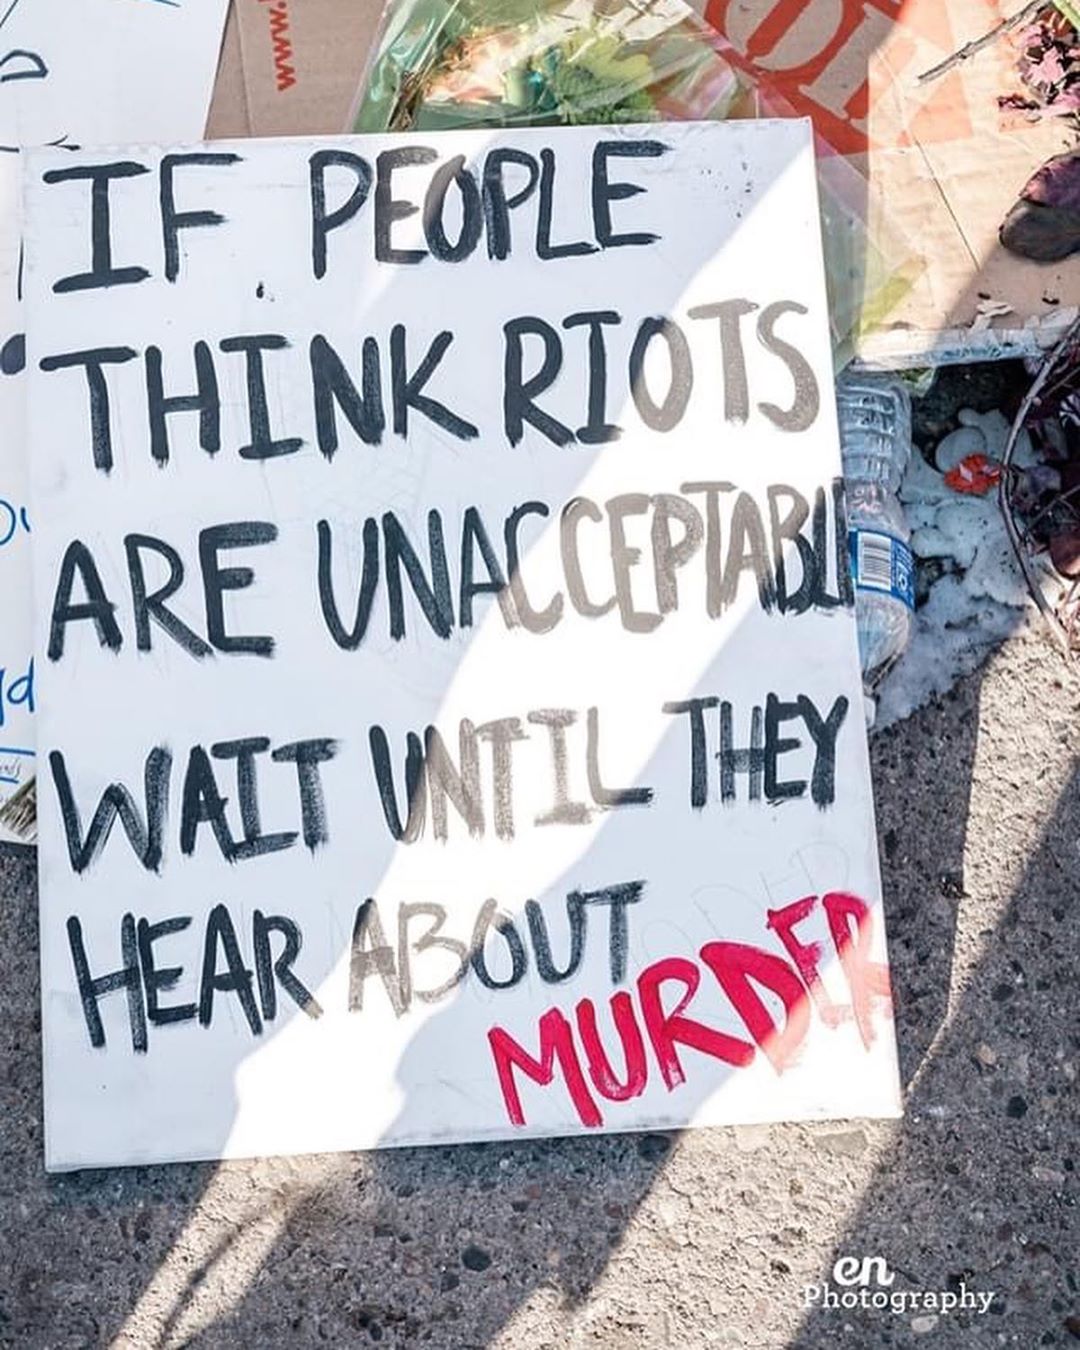 www.
IF PEOPLE
THINK RIOTS
ARE UNACCEPTABL
WAIT UNTIL THEY
HEAR ABOUT
MURDER
en
Photography